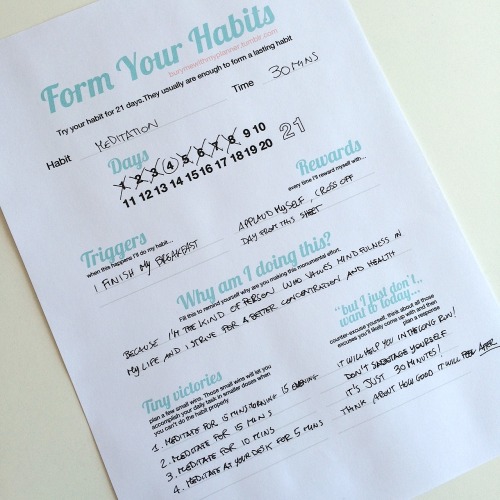 Form Your Habits
burymewithmyplanner.tumblr.com
Try your habit for 21 days. They usually are enough to form a lasting habit
Habit MEDITATION Time 30 MINS
Days
1 2 3 4 5 6 7 8 9 10
11 12 13 14 15 16 17 18 19 20
21
Triggers
when this happens I'll do my habit...
I FINISH MY BREAKFAST
Rewards
every time I'll reward myself with...
APPLAUD MYSELF, CROSS OFF
DAY FROM THIS SHEET
Why am I doing this?
Fill this to remind yourself why are you making this monumental effort.
BECAUSE I'M THE KIND OF PERSON WHO VALUES MINDFULNESS IN
MY LIFE AND I STRIVE FOR A BETTER CONCENTRATION AND HEALTH
Tiny victories
plan a few small wins. Those small wins will let you
accomplish your daily task in smaller doses when
you can't do the habit properly
1. MEDITATE FOR 15 MINS MORNING 15 EVENING
2. MEDITATE FOR 15 MINS
3. MEDITATE FOR 10 MINS
4. MEDITATE AT YOUR DESK FOR 5 MINS
"but I just don't
want to today...
counter-excuse yourself. think about all those
excuses you'll likely come up with and then
plan a response
IT WILL HELP YOU IN THE LONG RUN!
DON'T SABOTAGE YOURSELF
IT'S JUST 30 MINUTES!
THINK ABOUT HOW GOOD IT WILL FEEL AFTER